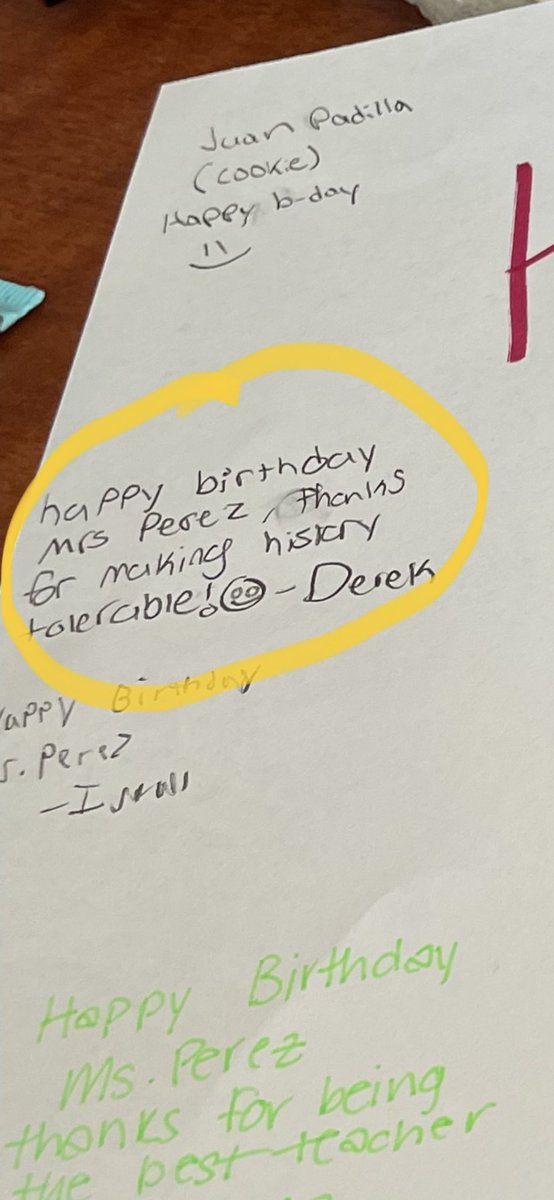 Juan Padilla
(cookie)
Happy b-day
happy birthday
Mrs Perez, Thanks
for making history
tolerable! - Derek
Happy Birthday
s. Perez
Happy Birthday
Ms. Perez
thanks for being
the best teacher